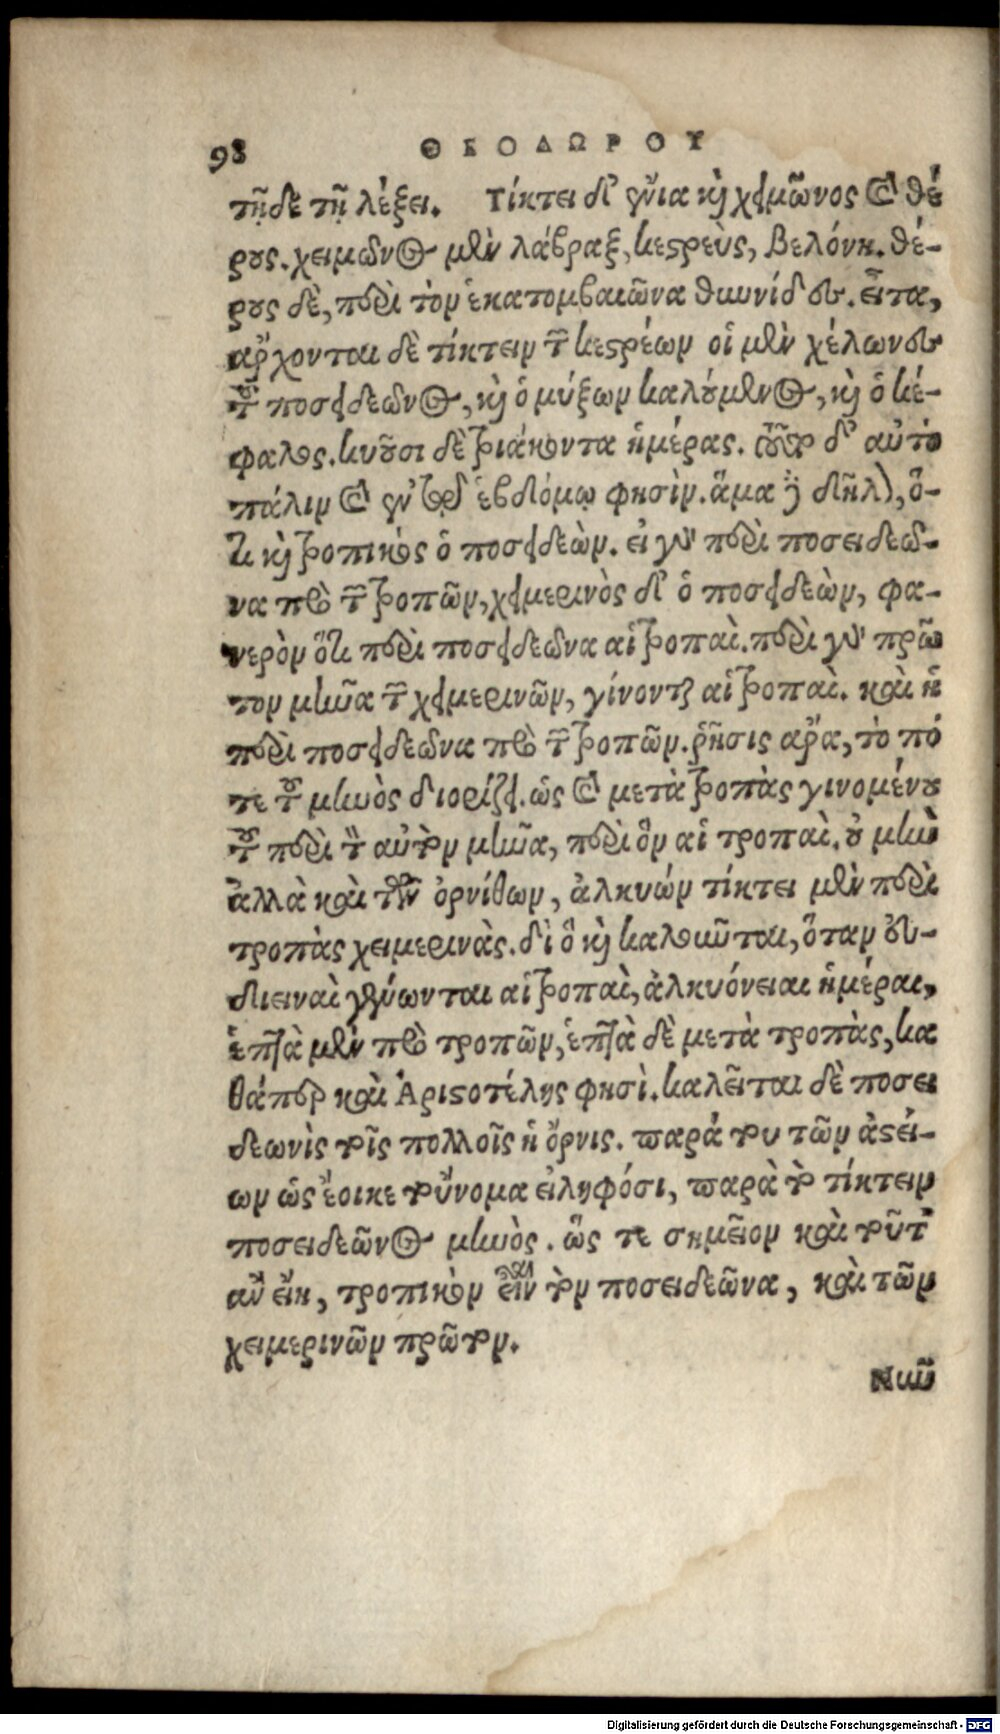 98 ΘΕΟΔΩΡΟΥ
τῇδε τῇ λέξει. Τίκτει δ' ἔνια καὶ χειμῶνος καὶ θέ
ρους. χειμῶνος μὲν λάβραξ, κεστρεὺς, βελόνη. θέ-
ρους δὲ, περὶ τὸν ἑκατομβαιῶνα θυννίδες. εἶτα,
ἄρχονται δὲ τίκτειν τῶν κεστρέων οἱ μὲν χέλωνες
τοῦ ποσειδεῶνος, καὶ ὁ μύξων καλούμενος, καὶ ὁ κέ-
φαλος. κυοῦσι δὲ τριάκοντα ἡμέρας. ὅπερ δ' αὐτὸ
πάλιν καὶ ἐν τῷ ἑβδόμῳ φησὶν. ἅμα γὰρ δῆλον, ὅ-
τι καὶ τροπικὸς ὁ ποσειδεὼν. εἰ γὰρ περὶ ποσειδεῶ-
να πρὸ τῶν τροπῶν, χειμερινὸς δ' ὁ ποσειδεὼν, φα-
νερὸν ὅτι περὶ ποσειδεῶνα αἱ τροπαὶ. περὶ γὰρ πρῶ
τον μῆνα τῶν χειμερινῶν, γίνονται αἱ τροπαὶ. καὶ ἡ
περὶ ποσειδεῶνα πρὸ τῶν τροπῶν. ῥῆσις ἄρα, τὸ πό
τε τοῦ μηνὸς διορίζει. ὡς καὶ μετὰ τροπὰς γινομένου
τοῦ περὶ τὸν αὐτὸν μῆνα, περὶ ὃν αἱ τροπαὶ. οὐ μὴν
ἀλλὰ καὶ τῶν ὀρνίθων, ἀλκυὼν τίκτει μὲν περὶ
τροπὰς χειμερινὰς. δὶ ὃ καὶ καλοῦνται, ὅταν εὐ-
διειναὶ γένωνται αἱ τροπαὶ, ἀλκυόνειαι ἡμέραι,
ἑπτὰ μὲν πρὸ τροπῶν, ἑπτὰ δὲ μετὰ τροπὰς, κα
θάπερ καὶ Ἀριστοτέλης φησὶ. καλεῖται δὲ ποσει
δεωνὶς τοῖς πολλοῖς ἡ ὄρνις. παρά του τῶν ἀστεί-
ων ὡς ἔοικε τοὔνομα εἰληφόσι, παρὰ τὸ τίκτειν
ποσειδεῶνος μηνὸς. ὥς τε σημεῖον καὶ τοῦτ'
ἂν εἴη, τροπικὸν εἶναι τὸν ποσειδεῶνα, καὶ τῶν
χειμερινῶν πρῶτον.
Νοῦν